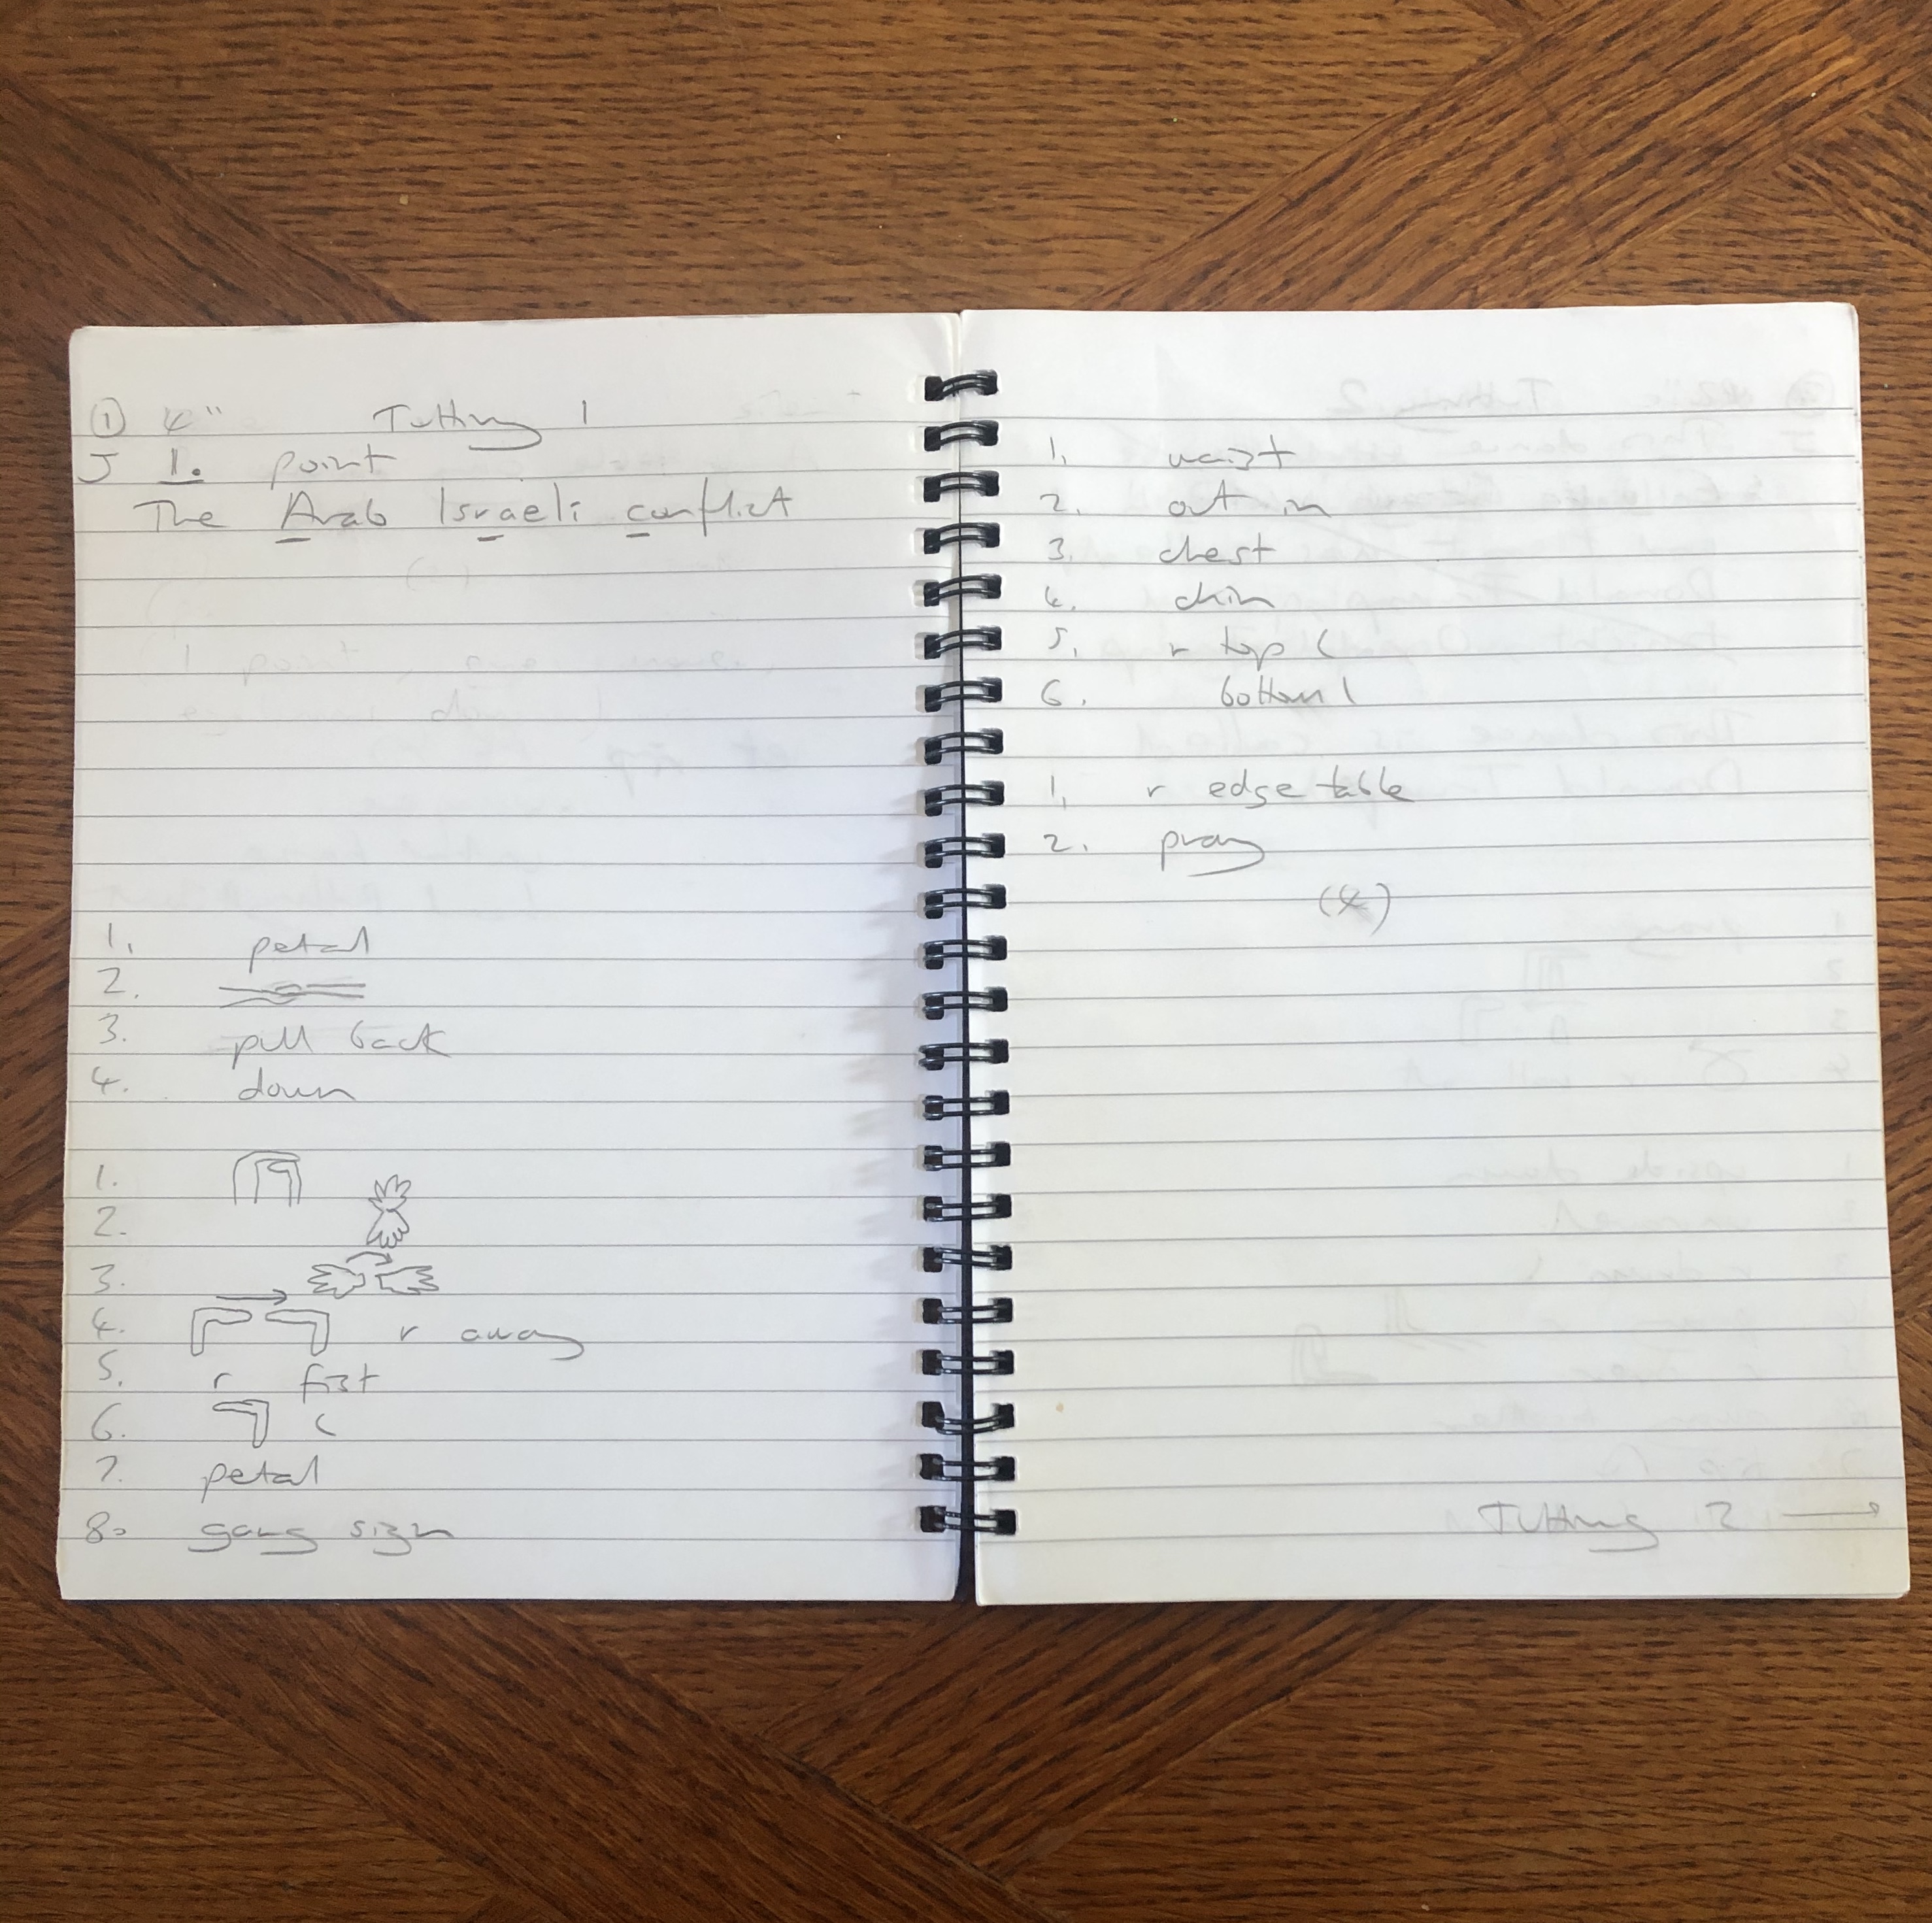 ① 4" Tutting 1
J 1. point
The Arab Israeli conflict
1. petal
2.
3. pull back
4. down
1.
2.
3.
4. r away
5. r fist
6. (
7. petal
8. gang sign
1. waist
2. out in
3. chest
4. chin
5. r top (
6. bottom l
1. r edge table
2. pray
(4)
Tutting 2 →